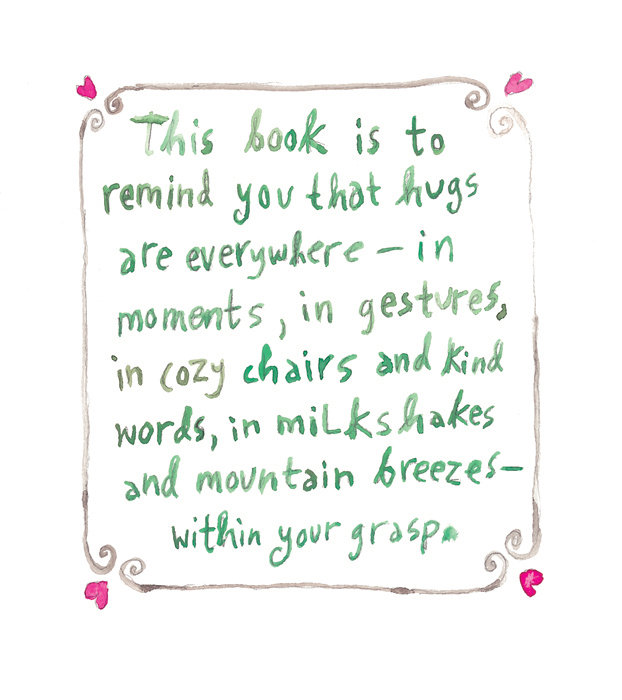 This book is to
remind you that hugs
are everywhere – in
moments, in gestures,
in cozy chairs and kind
words, in milkshakes
and mountain breezes–
within your grasp.